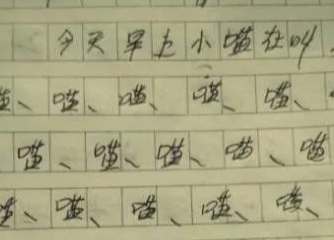 今天早上小喵在叫
喵、喵、喵、喵、喵、
喵、喵、喵、喵、喵
喵、喵、喵、喵、喵、